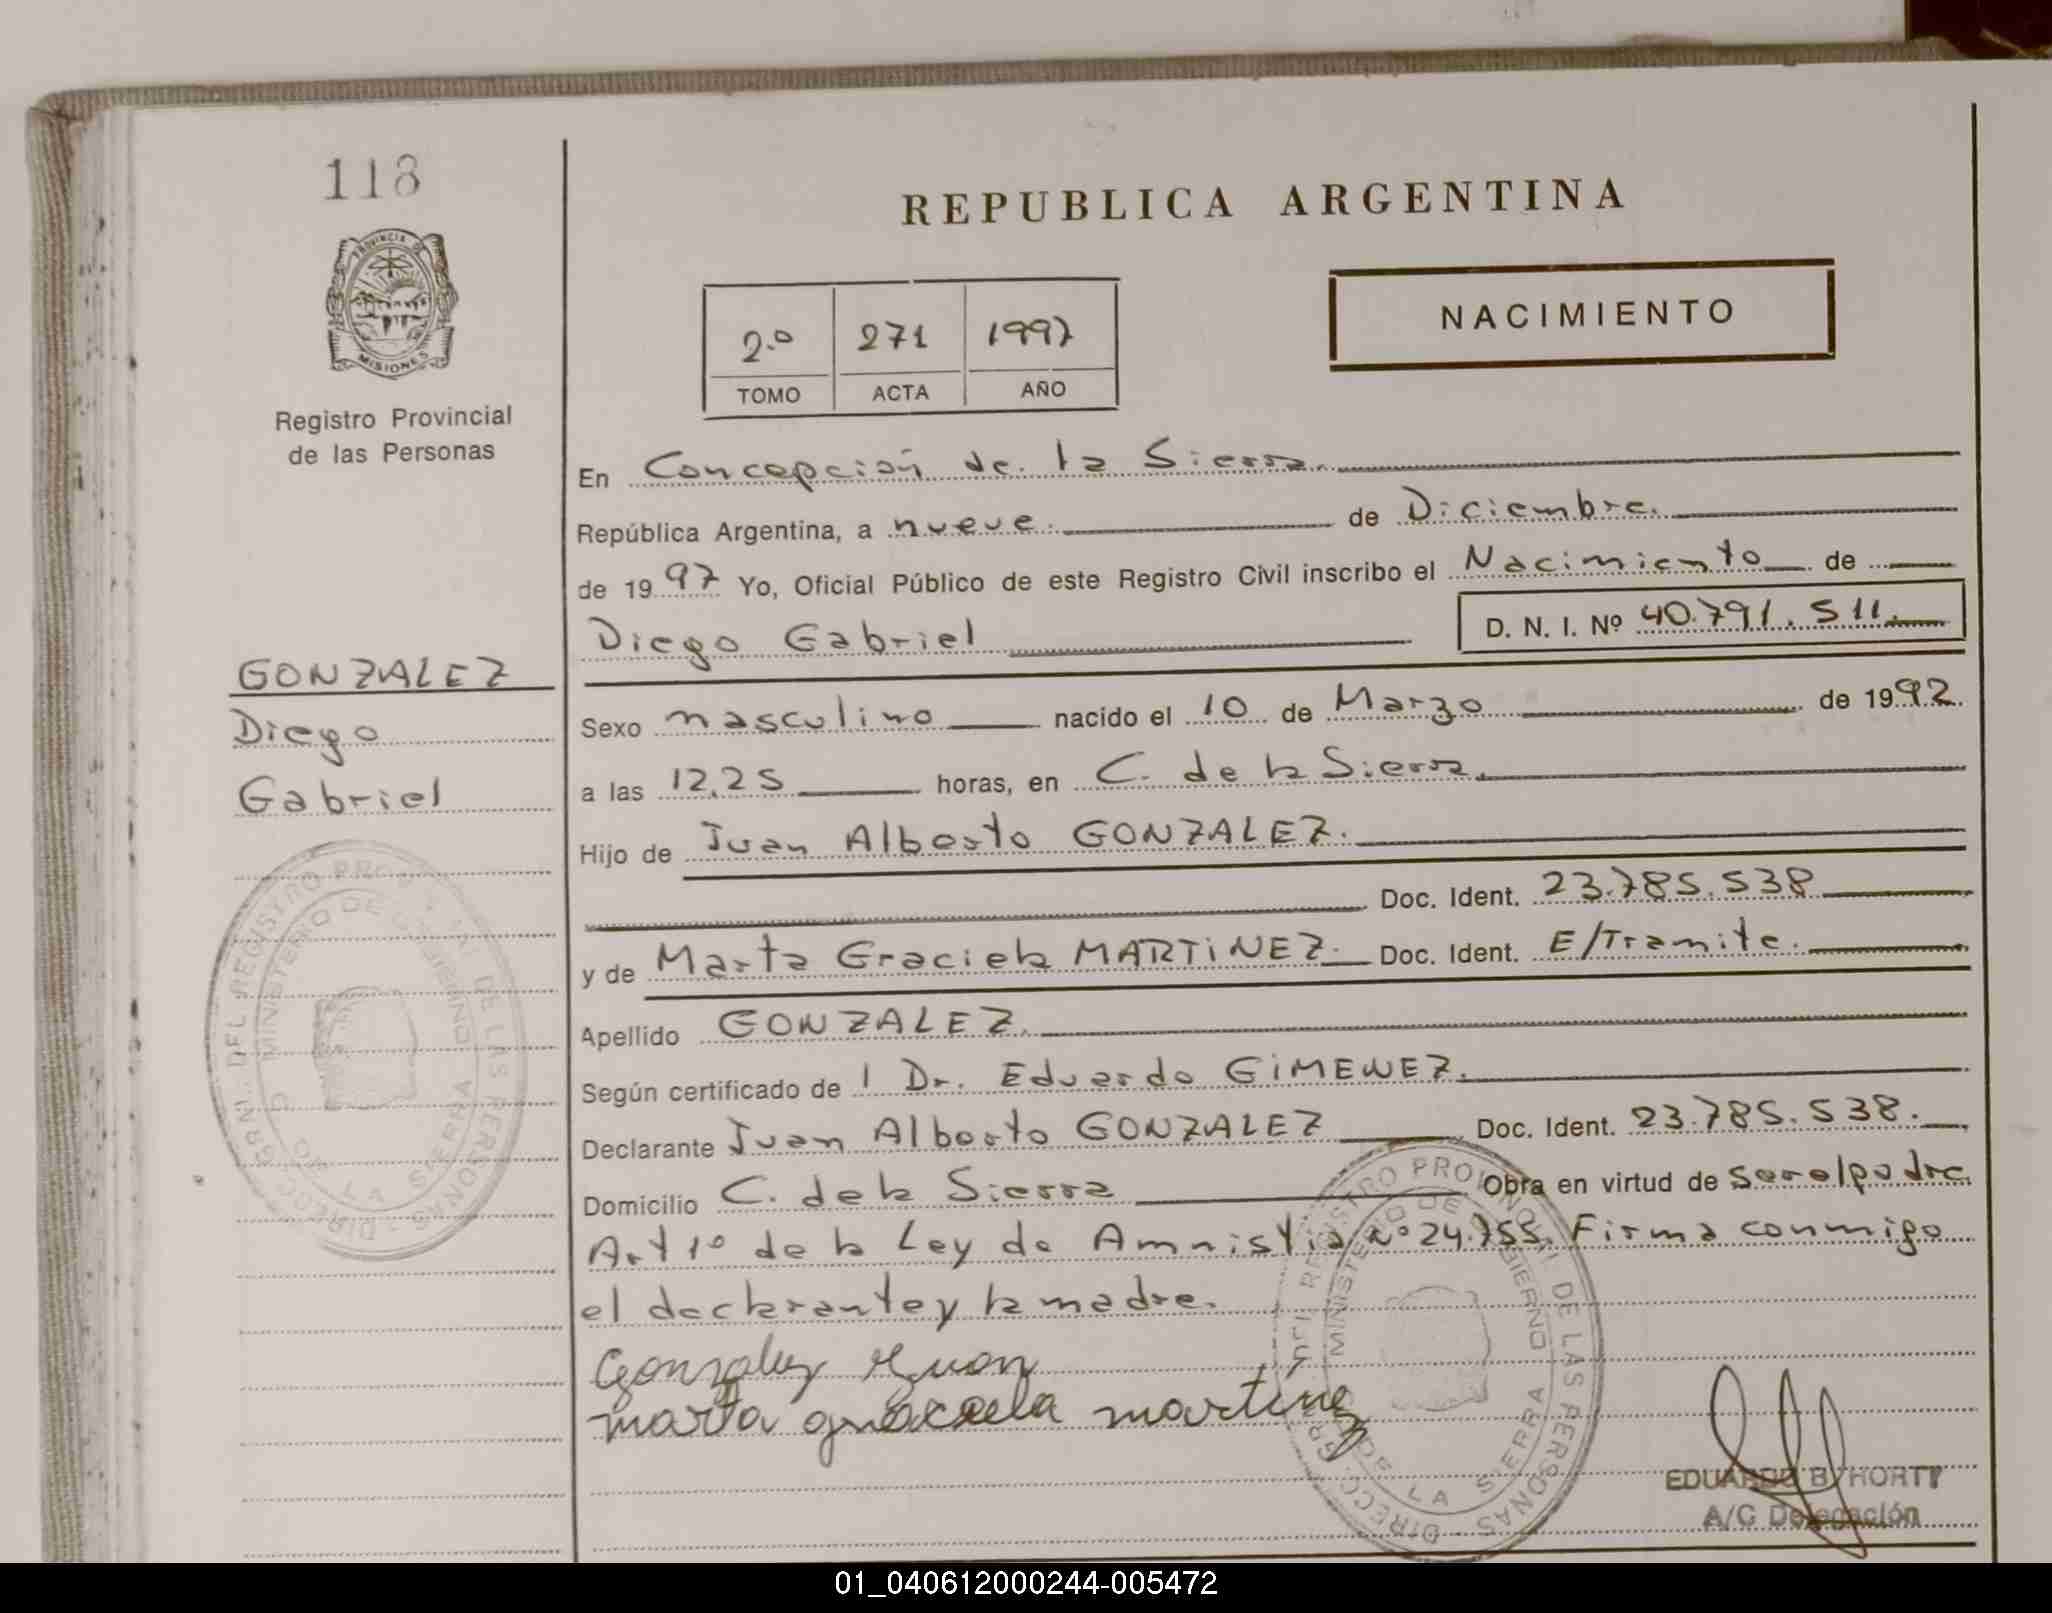 118
PROVINCIA DE
MISIONES
Registro Provincial
de las Personas
GONZALEZ
Diego
Gabriel
DIRECC. GRAL. DEL REGISTRO PROVINCIAL DE LAS PERSONAS
MINISTERIO DE GOBIERNO
DE LA SIERRA
REPUBLICA ARGENTINA
NACIMIENTO
2º 271 1997
TOMO ACTA AÑO
En Concepción de la Sierra.
República Argentina, a nueve. de Diciembre.
de 1997 Yo, Oficial Público de este Registro Civil inscribo el Nacimiento de
Diego Gabriel D. N. I. Nº 40.791.511.
Sexo masculino nacido el 10 de Marzo de 1992.
a las 12,25 horas, en C. de la Sierra.
Hijo de Juan Alberto GONZALEZ.
Doc. Ident. 23.785.538
y de Marta Graciela MARTINEZ. Doc. Ident. E/Tramite.
Apellido GONZALEZ.
Según certificado de l Dr. Eduardo GIMENEZ.
Declarante Juan Alberto GONZALEZ Doc. Ident. 23.785.538.
Domicilio C. de la Sierra Obra en virtud de ser el padre.
Art 1º de la Ley de Amnistia Nº 24.755. Firma conmigo
el declarante y la madre.
Gonzalez Juan
marta gracaela martínez
DIRECC. GRAL. DEL REGISTRO PROVINCIAL DE LAS PERSONAS
MINISTERIO DE GOBIERNO
DE LA SIERRA
EDUARDO B. HORTT
A/C Delegación
01_040612000244-005472